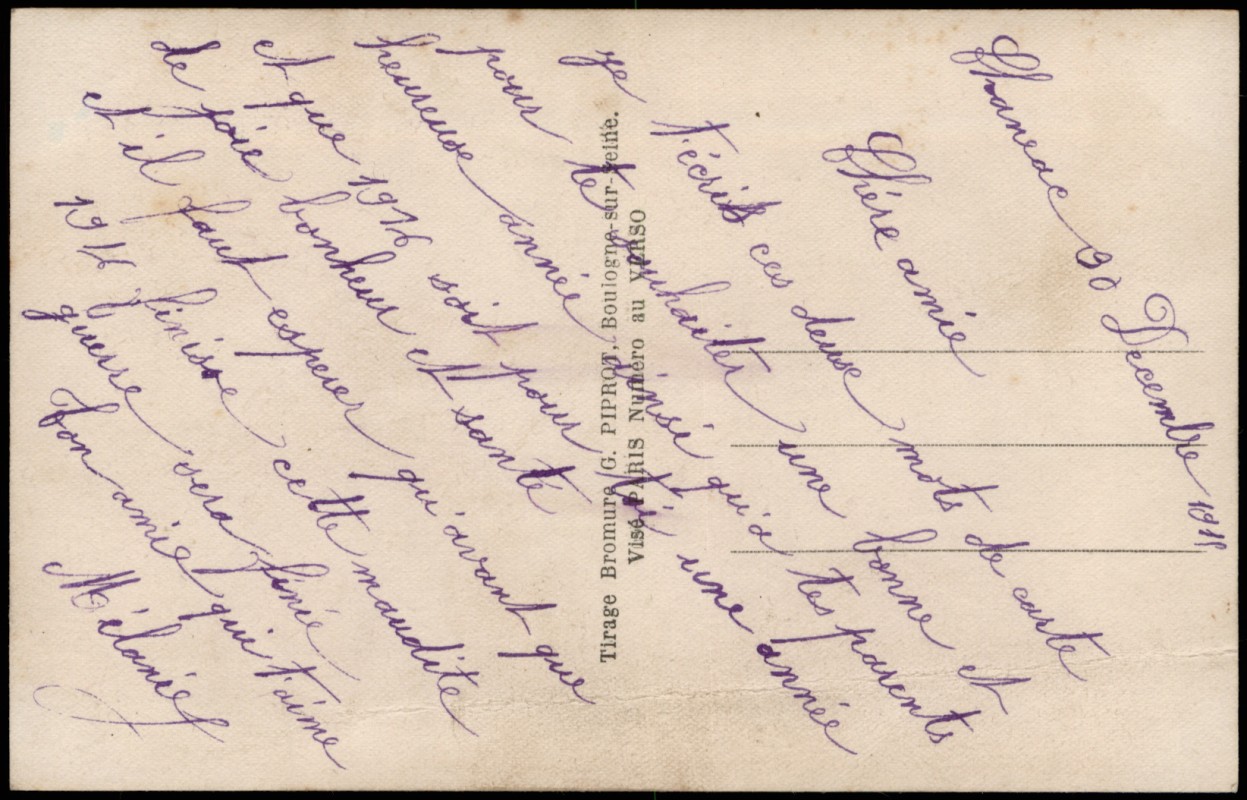 Chaneac 30 Decembre 1915
Chère amie
Je t'écrits ces deuse mots de carte
pour te souhaiter une bonne et
heureuse année ainsi qu'a tes parents
et que 1916 soit pour toi une année
de joie bonheur et santé
et il faut esperer qu'avant que
1916 finisse cette maudite
guerre sera finie
Ton amie qui t'aime
Mélanie
Tirage Bromure G. PIPROT, Boulogne-sur-Seine.
Visé PARIS Numéro au VERSO